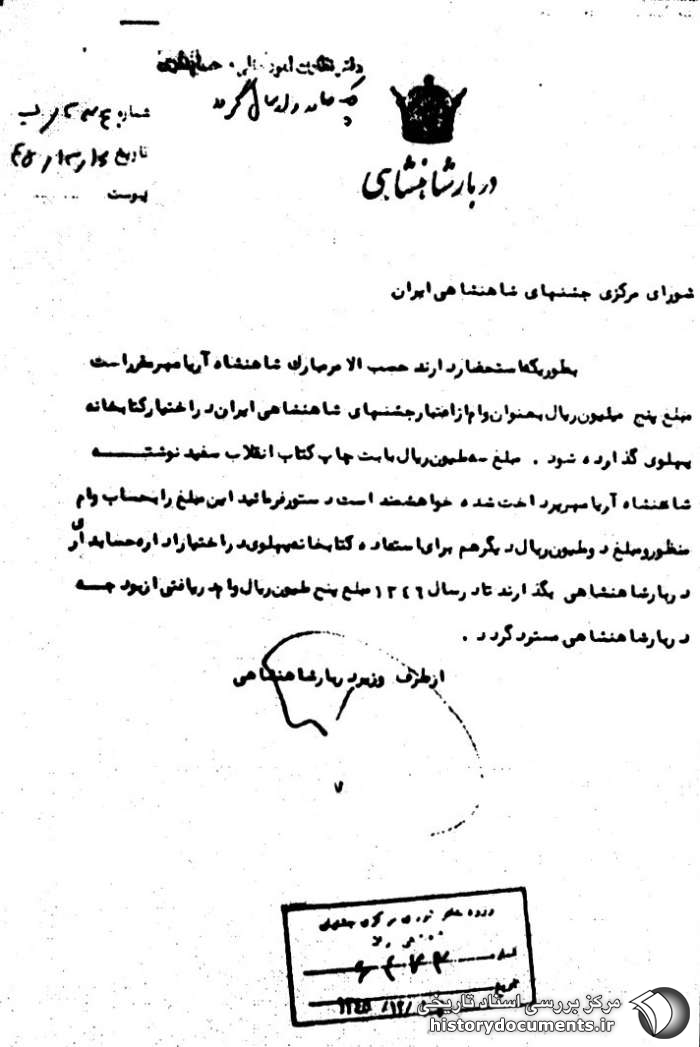 دفتر
شماره
تاریخ
پیوست
دربار شاهنشاهی
شورای مرکزی جشنهای شاهنشاهی ایران
بطوریکه استحضار دارند حسب الامر مبارک شاهنشاه آریامهر مقرر است
مبلغ پنج میلیون ریال بعنوان وام از اعتبار جشنهای شاهنشاهی ایران در اختیار کتابخانه
پهلوی گذارده شود . مبلغ سه ملیون ریال بابت چاپ کتاب انقلاب سفید نوشته
شاهنشاه آریامهر پرداخت شده خواهشمند است دستور فرمائید این مبلغ را بحساب وام
منظور و مبلغ دو ملیون ریال دیگر هم برای استفاده کتابخانه پهلوی در اختیار اداره حسابداری
دربار شاهنشاهی بگذارند تا در سال ۱۳۴۶ مبلغ پنج ملیون ریال وام دریافتی از بودجه
دربار شاهنشاهی مسترد گردد .
از طرف وزیر دربار شاهنشاهی
۷
شورای مرکزی
تاریخ
مرکز بررسی اسناد تاریخی
historydocuments.ir